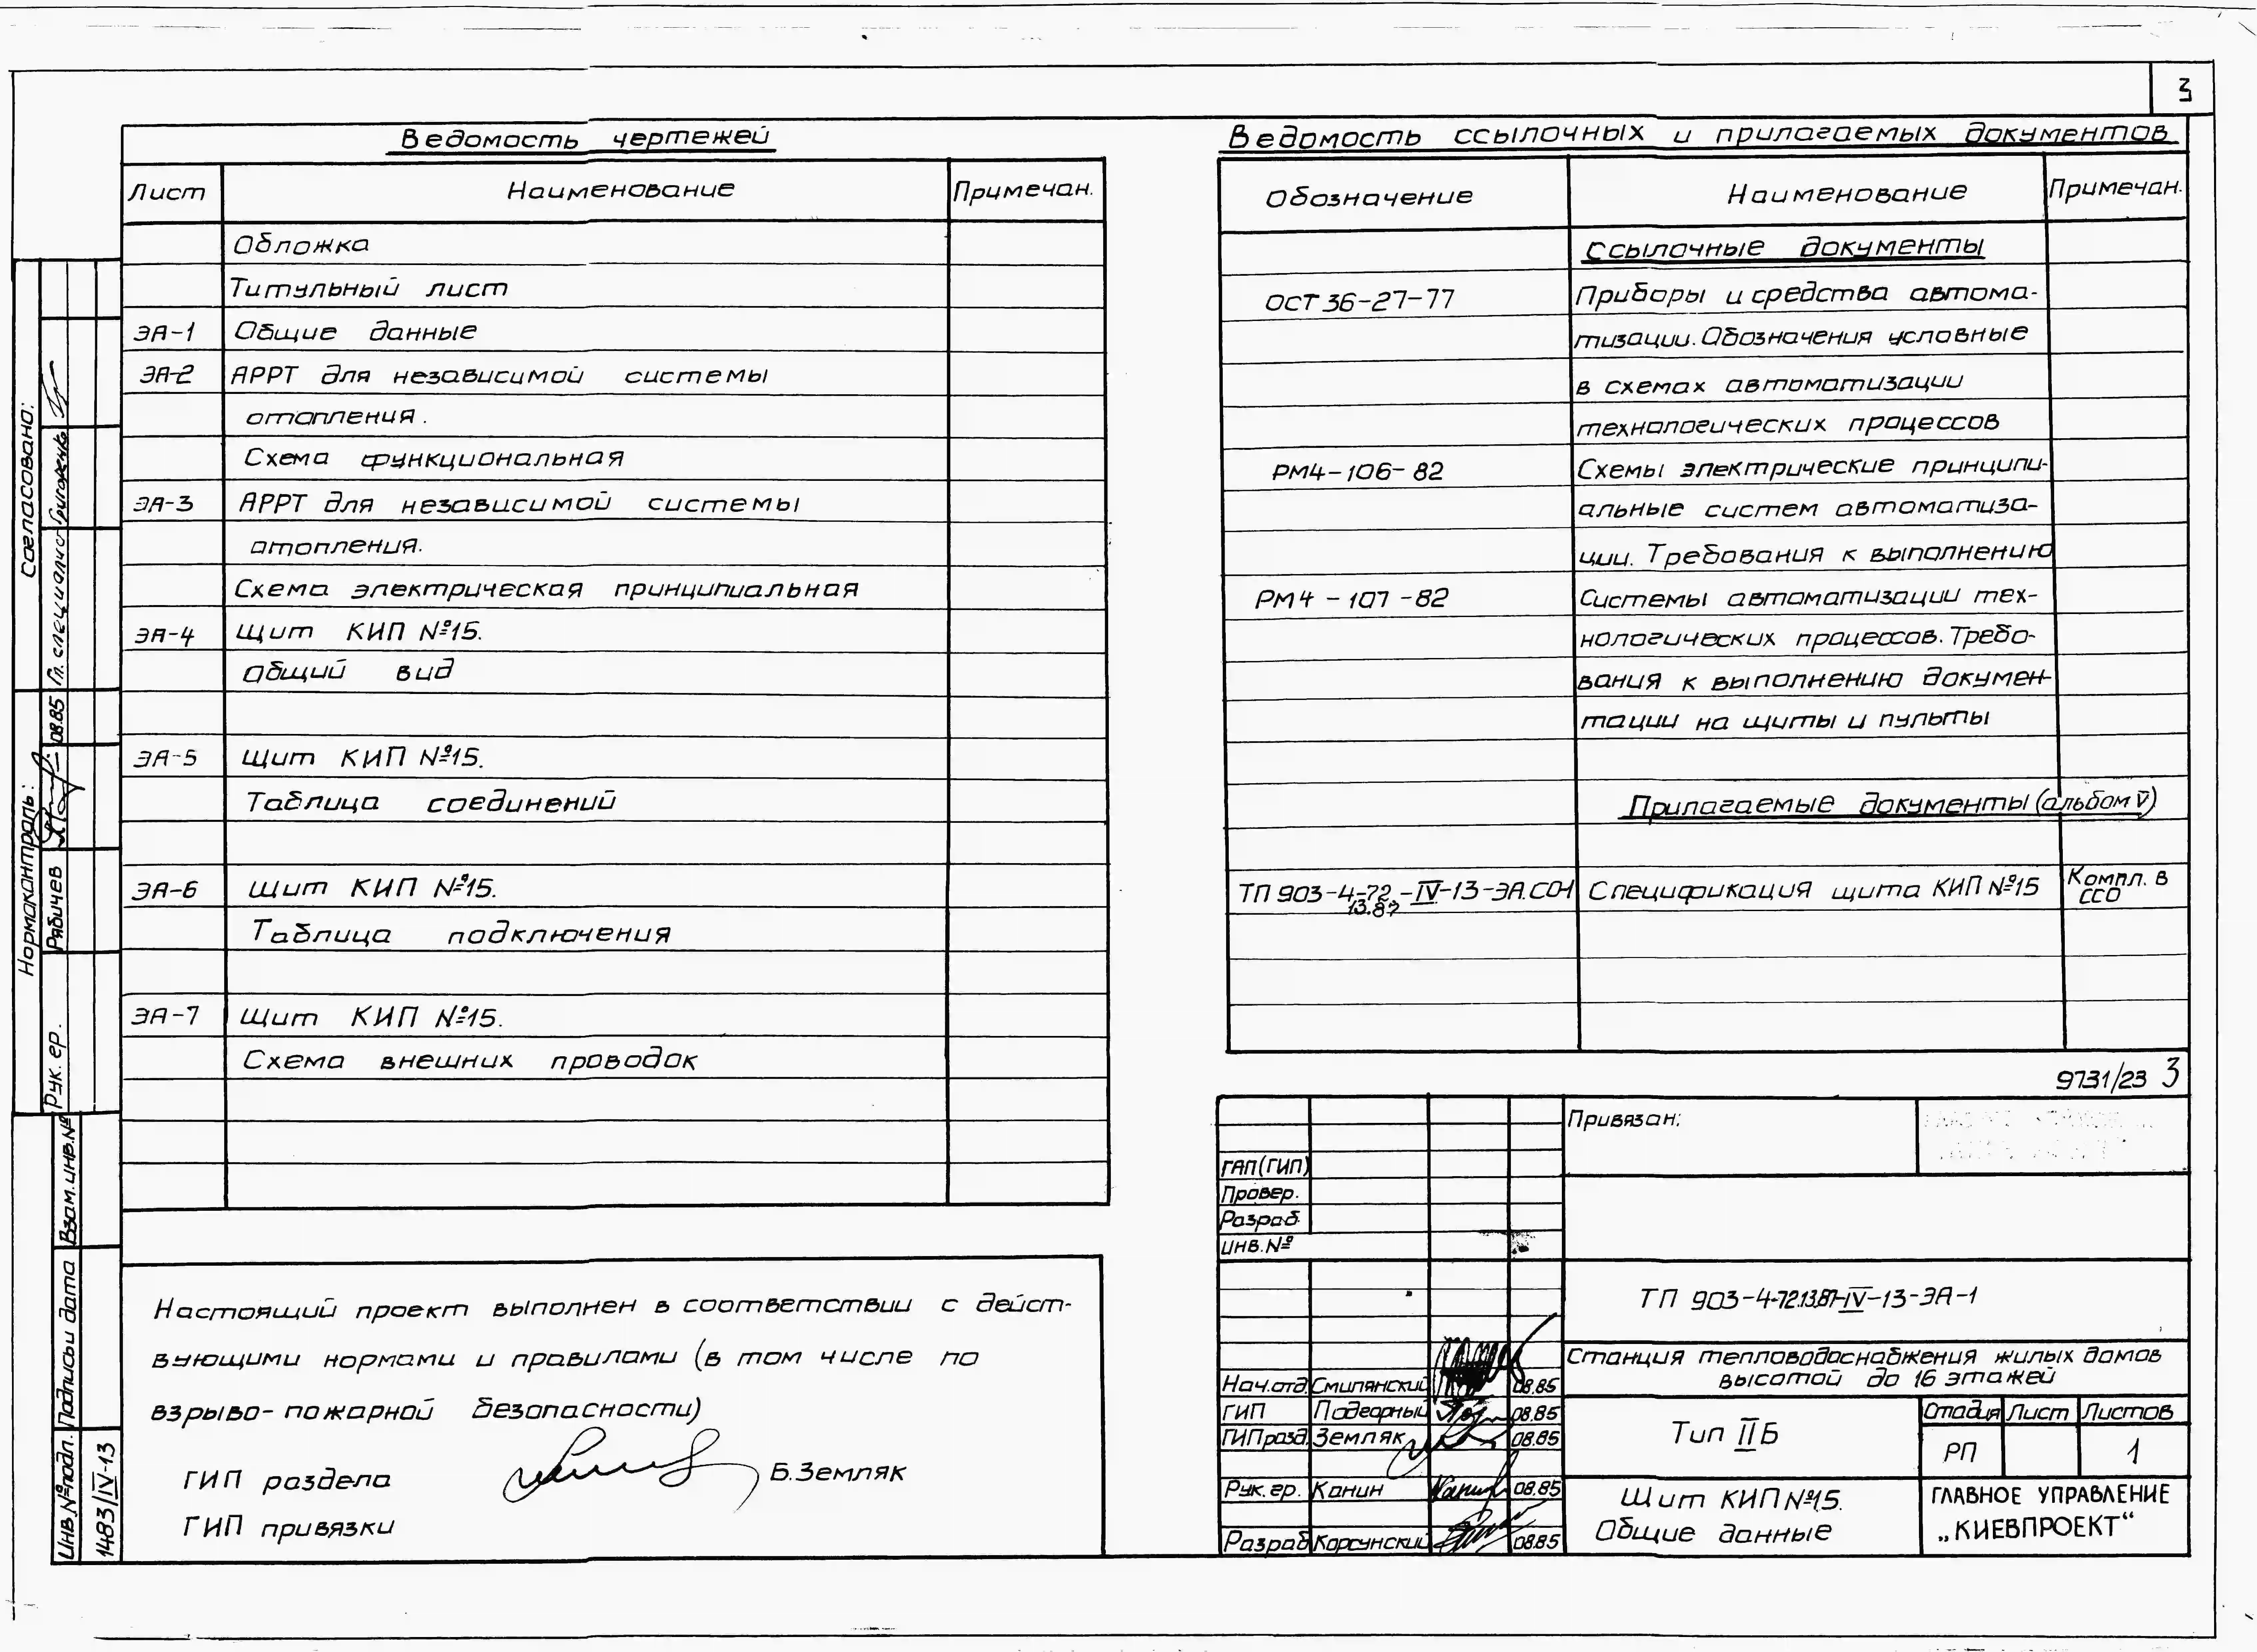 3
Ведомость чертежей
Лист Наименование Примечан.
Обложка
Титульный лист
ЭА-1 Общие данные
ЭА-2 АРРТ для независимой системы
отопления.
Схема функциональная
ЭА-3 АРРТ для независимой системы
отопления.
Схема электрическая принципиальная
ЭА-4 Щит КИП №15.
Общий вид
ЭА-5 Щит КИП №15.
Таблица соединений
ЭА-6 Щит КИП №15.
Таблица подключения
ЭА-7 Щит КИП №15.
Схема внешних проводок
Ведомость ссылочных и прилагаемых документов
Обозначение Наименование Примечан.
Ссылочные документы
ОСТ 36-27-77 Приборы и средства автома-
тизации. Обозначения условные
в схемах автоматизации
технологических процессов
РМ4-106-82 Схемы электрические принципи-
альные систем автоматиза-
ции. Требования к выполнению
РМ4-107-82 Системы автоматизации тех-
нологических процессов. Требо-
вания к выполнению докумен-
тации на щиты и пульты
Прилагаемые документы (альбом V)
ТП 903-4-72.-IV-13-ЭА.СО1 Спецификация щита КИП №15 Компл. в
13.87 ССО
9731/23 3
Настоящий проект выполнен в соответствии с дейст-
вующими нормами и правилами (в том числе по
взрыво-пожарной безопасности)
ГИП раздела Б.Земляк
ГИП привязки
Привязан:
ГАП(ГИП)
Провер.
Разраб.
Инв.№
ТП 903-4-72.13.87-IV-13-ЭА-1
Станция тепловодоснабжения жилых домов
высотой до 16 этажей
Нач.отд. Смилянский 08.85
ГИП Подгорный 08.85
ГИПразд. Земляк 08.85
Рук.гр. Канин 08.85
Разраб Корсунский 08.85
Тип II Б
Стадия Лист Листов
РП 1
Щит КИП №15.
Общие данные
ГЛАВНОЕ УПРАВЛЕНИЕ
„КИЕВПРОЕКТ“
Согласовано:
Гл. специалист Григоренко
Нормоконтроль:
Рук. гр. Рябичев 08.85
Взам.инв.№
Подпись и дата
Инв.№ подл.
1483/IV-13